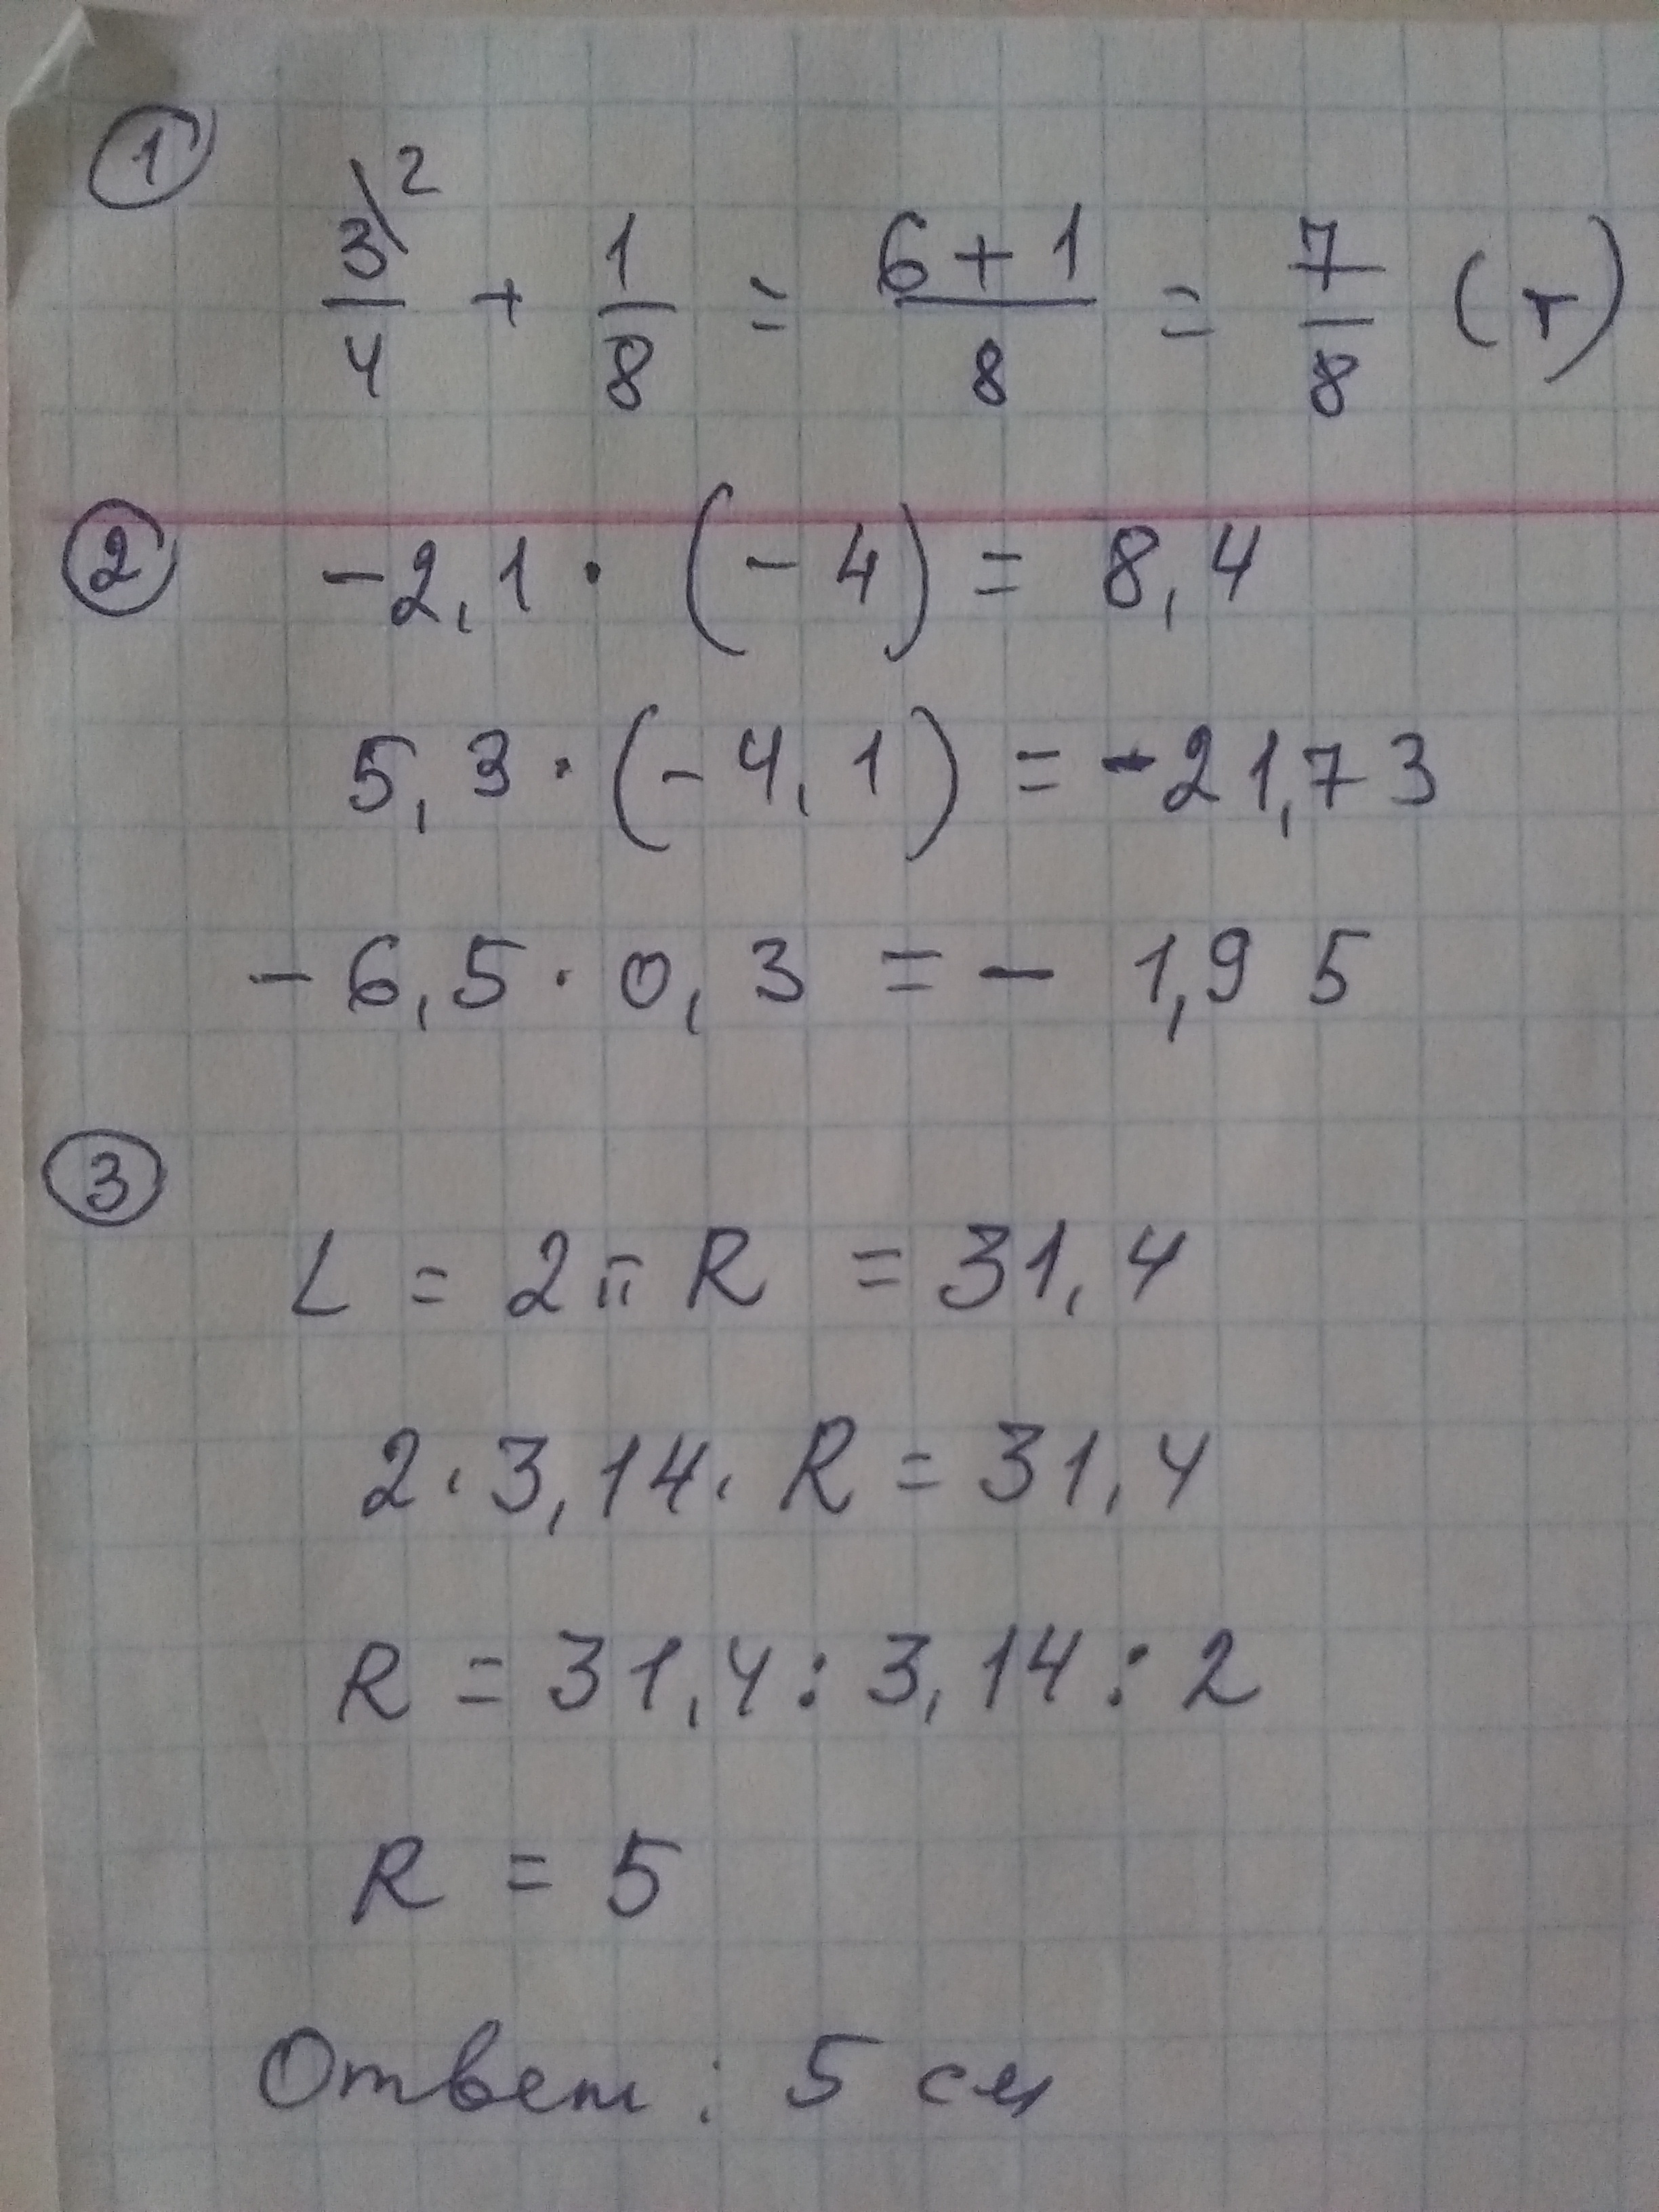 1
3\2/4 + 1/8 = (6+1)/8 = 7/8 (т)
2
-2,1 · (-4) = 8,4
5,3 · (-4,1) = -21,73
-6,5 · 0,3 = - 1,95
3
L = 2π R = 31,4
2 · 3,14 · R = 31,4
R = 31,4 : 3,14 : 2
R = 5
Ответ: 5 см